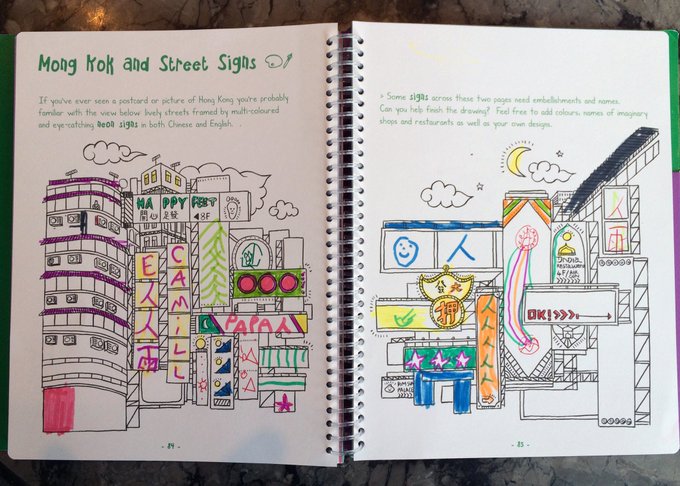 Mong Kok and Street Signs
If you've ever seen a postcard or picture of Hong Kong you're probably
familiar with the view below: lively streets framed by multi-coloured
and eye-catching neon signs in both Chinese and English.
HAPPY FEET
開心足發 ◀8F
E人人雨
CAMiLL
PAPA人
- 84 -
> Some signs across these two pages need embellishments and names.
Can you help finish the drawing? Feel free to add colours, names of imaginary
shops and restaurants as well as your own designs.
人
人雨
India
Restaurant
押
OK!>>>
人人人人人
DIM SUM
PALACE
- 85 -